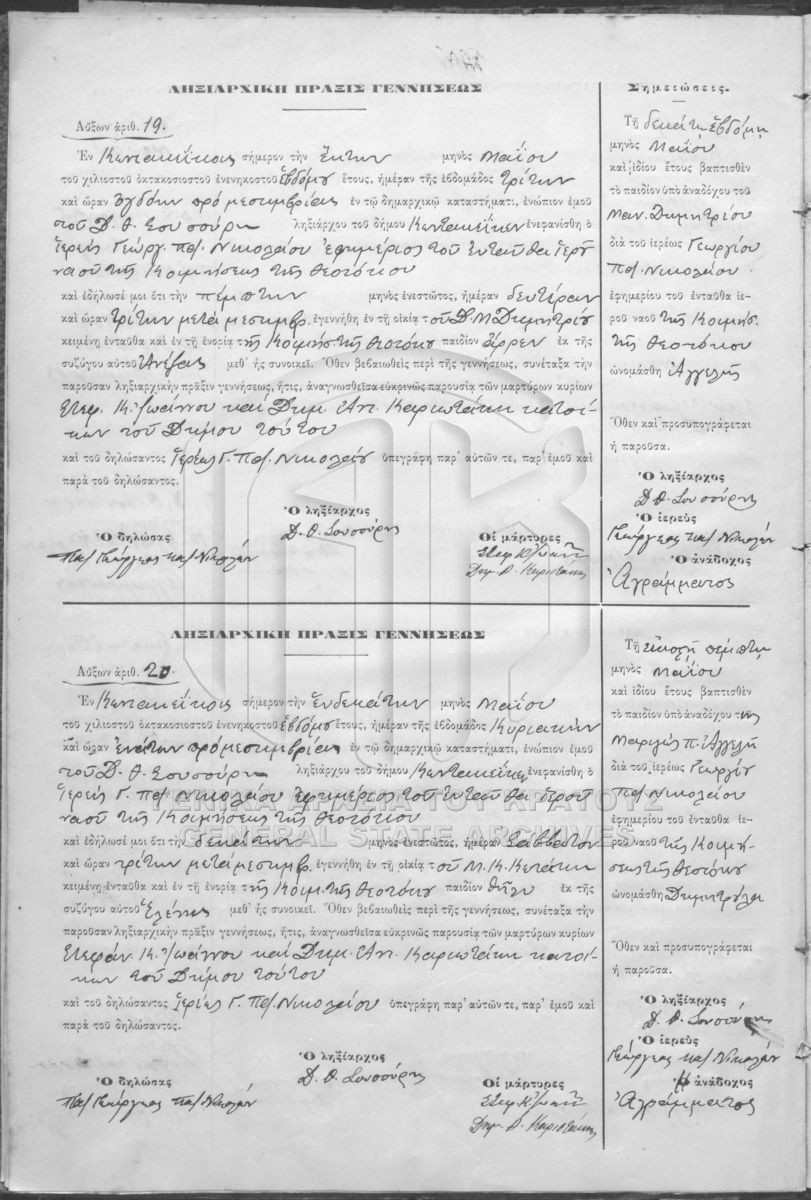 ΛΗΞΙΑΡΧΙΚΗ ΠΡΑΞΙΣ ΓΕΝΝΗΣΕΩΣ
Αὔξων ἀριθ. 19.
Ἐν Κοντακεΐκοις σήμερον τὴν ἕκτην μηνὸς Μαΐου
τοῦ χιλιοστοῦ ὀκτακοσιοστοῦ ἐνενηκοστοῦ ἑβδόμου ἔτους, ἡμέραν τῆς ἑβδομάδος τρίτην
καὶ ὥραν ὀγδόην πρό μεσημβρίας ἐν τῷ δημαρχικῷ καταστήματι, ἐνώπιον ἐμοῦ
τοῦ Δ. Θ. Σουσούρη ληξιάρχου τοῦ δήμου Κοντακεΐκων ἐνεφανίσθη ὁ
Ἱερεὺς Γεώργ. πα/ Νικολαίου ἐφημέριος τοῦ ἐνταῦθα Ἱεροῦ
ναοῦ τῆς Κοιμήσεως τῆς Θεοτόκου
καὶ ἐδήλωσέ μοι ὅτι τὴν πέμπτην μηνὸς ἐνεστῶτος, ἡμέραν δευτέραν
καὶ ὥραν τρίτην μετά μεσημβρ. ἐγεννήθη ἐν τῇ οἰκίᾳ τοῦ Δ. Μ Δημητρίου
κειμένῃ ἐνταῦθα καὶ ἐν τῇ ἐνορίᾳ τῆς Κοιμήσ. τῆς Θεοτόκου παιδίον ἄρρεν ἐκ τῆς
συζύγου αὐτοῦ μεθ' ἧς συνοικεῖ. Ὅθεν βεβαιωθεὶς περὶ τῆς γεννήσεως, συνέταξα τὴν
παροῦσαν ληξιαρχικὴν πρᾶξιν γεννήσεως, ἥτις, ἀναγνωσθεῖσα εὐκρινῶς παρουσίᾳ τῶν μαρτύρων κυρίων
Στεφ. Κ. Ἰωάννου καὶ Δημ. Ἀπ. Καριωτάκη κατοί-
κων τοῦ Δήμου τούτου
καὶ τοῦ δηλώσαντος Ἱερέως Γ. Πα/ Νικολαίου ὑπεγράφη παρ' αὐτῶν τε, παρ' ἐμοῦ καὶ
παρὰ τοῦ δηλώσαντος.
Ὁ ληξίαρχος
Δ. Θ. Σουσούρης
Ὁ δηλώσας
Πα/ Γεώργιος πα/ Νικολάου
Οἱ μάρτυρες
Στεφ Κ. Ἰωάνν
Δημ. Α. Καριοτάκης
Σημειώσεις.
Τῇ δεκάτῃ ἑβδόμῃ
μηνὸς Μαΐου
καὶ ἰδίου ἔτους βαπτισθὲν
τὸ παιδίον ὑπὸ ἀναδόχου τοῦ
Μαν. Δημητρίου
διὰ τοῦ ἱερέως Γεωργίου
Πα/ Νικολαίου
ἐφημερίου τοῦ ἐνταῦθα ἱε-
ροῦ ναοῦ τῆς Κοιμήσ.
τῆς Θεοτόκου
ὠνομάσθη Ἀγγελῆς
Ὅθεν καὶ προσυπογράφεται
ἡ παροῦσα.
Ὁ ληξίαρχος
Δ. Θ. Σουσούρης
Ὁ ἱερεὺς
Γεώργιος πα/ Νικολάου
Ὁ ἀνάδοχος
Ἀγράμματος
ΛΗΞΙΑΡΧΙΚΗ ΠΡΑΞΙΣ ΓΕΝΝΗΣΕΩΣ
Αὔξων ἀριθ. 20.
Ἐν Κοντακεΐκοις σήμερον τὴν ἑνδεκάτην μηνὸς Μαΐου
τοῦ χιλιοστοῦ ὀκτακοσιοστοῦ ἐνενηκοστοῦ ἑβδόμου ἔτους, ἡμέραν τῆς ἑβδομάδος Κυριακήν
καὶ ὥραν ἐνάτην πρό μεσημβρίας ἐν τῷ δημαρχικῷ καταστήματι, ἐνώπιον ἐμοῦ
τοῦ Δ. Θ. Σουσούρη ληξιάρχου τοῦ δήμου Κοντακεΐκων ἐνεφανίσθη ὁ
Ἱερεύς Γ. πα/ Νικολαίου ἐφημέριος τοῦ ἐνταῦθα ἱεροῦ
ναοῦ τῆς Κοιμήσεως τῆς Θεοτόκου
καὶ ἐδήλωσέ μοι ὅτι τὴν δεκάτην μηνὸς ἐνεστῶτος, ἡμέραν Σάββατον
καὶ ὥραν τρίτην μετά μεσημβρ. ἐγεννήθη ἐν τῇ οἰκίᾳ τοῦ Μ. Κ.
κειμένῃ ἐνταῦθα καὶ ἐν τῇ ἐνορίᾳ τῆς Κοιμ. τῆς Θεοτόκου παιδίον θῆλυ ἐκ τῆς
συζύγου αὐτοῦ Ἑλένης μεθ' ἧς συνοικεῖ. Ὅθεν βεβαιωθεὶς περὶ τῆς γεννήσεως, συνέταξα τὴν
παροῦσαν ληξιαρχικὴν πρᾶξιν γεννήσεως, ἥτις, ἀναγνωσθεῖσα εὐκρινῶς παρουσίᾳ τῶν μαρτύρων κυρίων
Στεφάν. Κ. Ἰωάννου καὶ Δημ. Ἀπ. Καριωτάκη κατοί-
κων τοῦ Δήμου τούτου
καὶ τοῦ δηλώσαντος Ἱερέως Γ. Πα/ Νικολαίου ὑπεγράφη παρ' αὐτῶν τε, παρ' ἐμοῦ καὶ
παρὰ τοῦ δηλώσαντος.
Ὁ ληξίαρχος
Δ. Θ. Σουσούρης
Ὁ δηλώσας
Πα/ Γεώργιος πα/ Νικολάου
Οἱ μάρτυρες
Στεφ Κ. Ἰωάνν
Δημ. Α. Καριοτάκης
Τῇ εἰκοστῇ πέμπτῃ
μηνὸς Μαΐου
καὶ ἰδίου ἔτους βαπτισθὲν
τὸ παιδίον ὑπὸ ἀναδόχου της
Μαριγῶς Π. Ἀγγελῆ
διὰ τοῦ ἱερέως Γεωργίου
Πα/ Νικολαίου
ἐφημερίου τοῦ ἐνταῦθα ἱε-
ροῦ ναοῦ τῆς Κοιμή-
σεως τῆς Θεοτόκου
ὠνομάσθη
Ὅθεν καὶ προσυπογράφεται
ἡ παροῦσα.
Ὁ ληξίαρχος
Δ. Θ. Σουσούρης
Ὁ ἱερεὺς
Γεώργιος πα/ Νικολάου
Ἡ ἀνάδοχος
Ἀγράμματος
ΓΕΝΙΚΑ ΑΡΧΕΙΑ ΤΟΥ ΚΡΑΤΟΥΣ
GENERAL STATE ARCHIVES